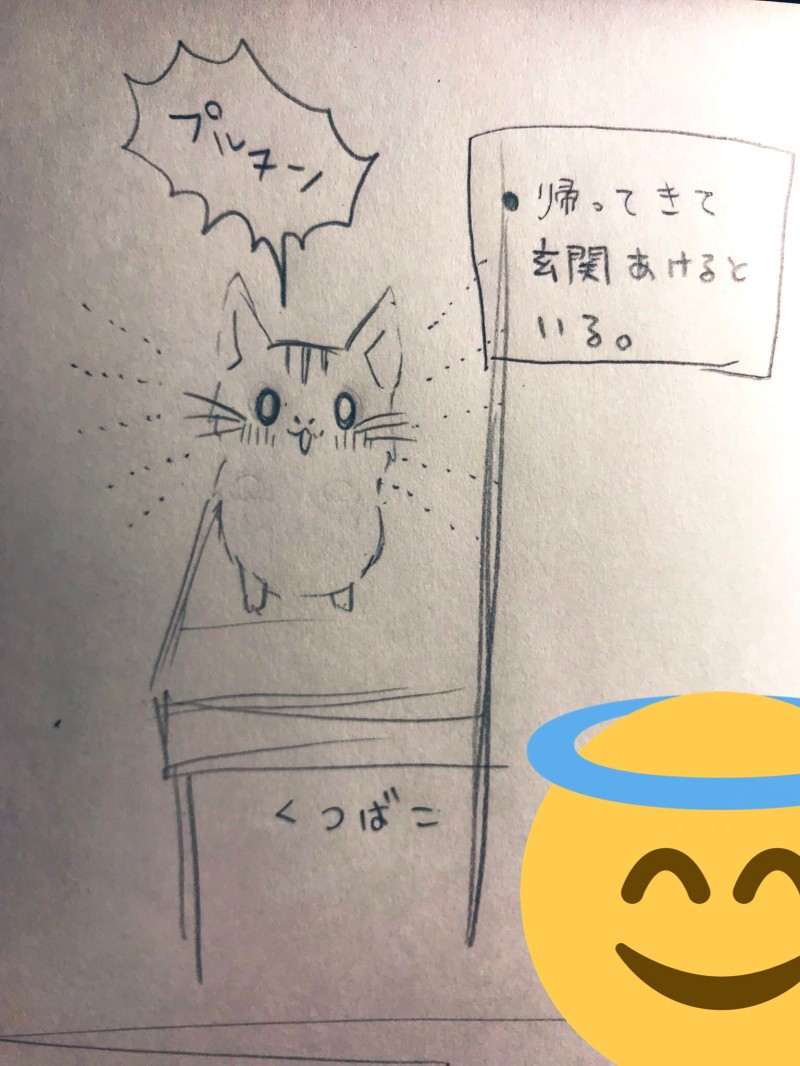 プルヌーン
・帰ってきて
玄関あけると
いる。
くつばこ